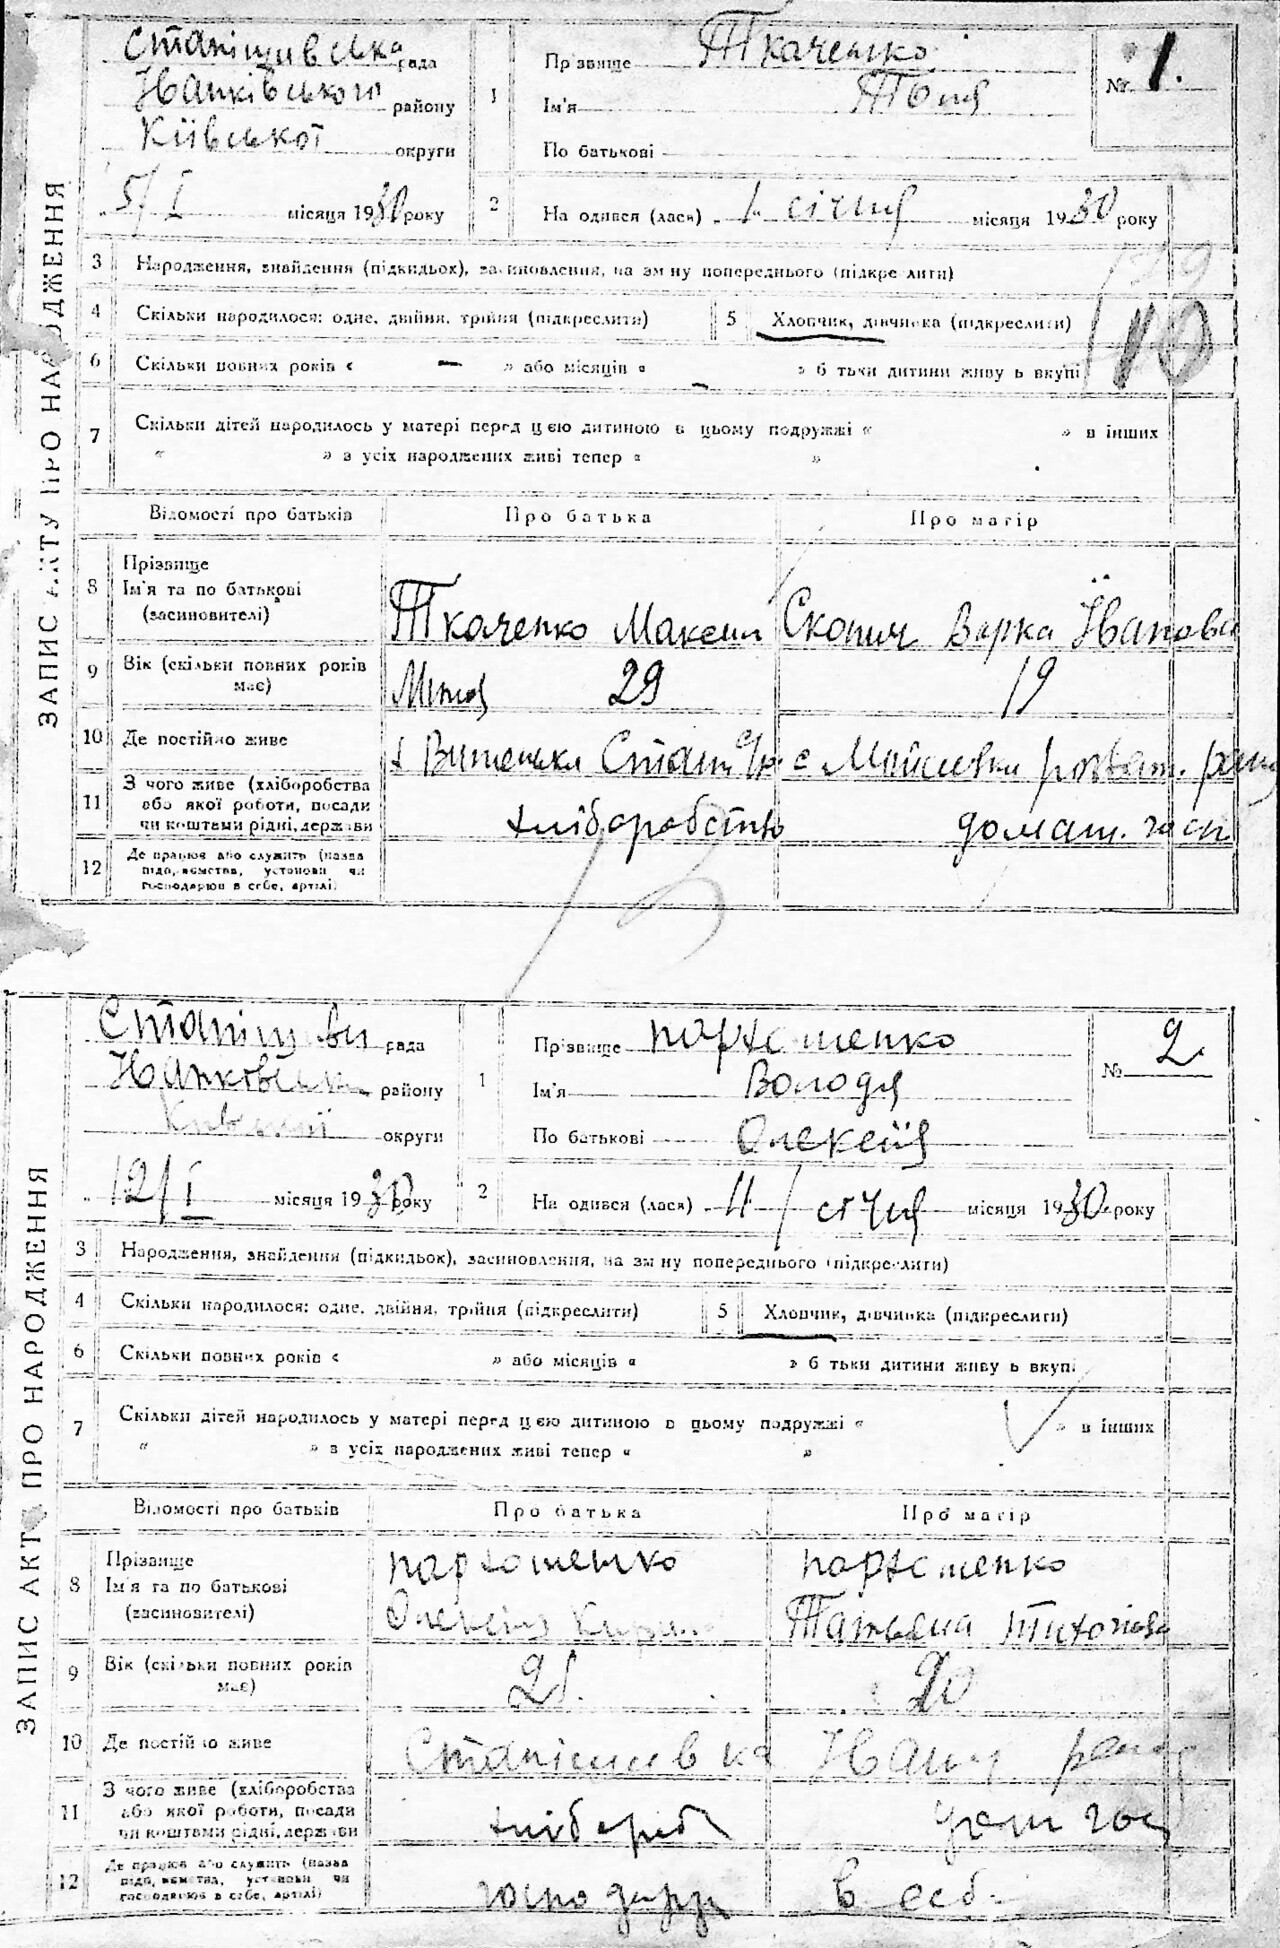 ЗАПИС АКТУ ПРО НАРОДЖЕННЯ
Станишивська рада
Иванківського району
Київської округи
5/I місяця 1930 року
1 Прізвище Ткаченко
Ім'я
По батькові
№ 1.
2 Народився (лася) 1. січня місяця 1930 року
3 Народження, знайдення (підкидьок), засиновлення, на зміну попереднього (підкреслити)
4 Скільки народилося: одне, двійня, трійня (підкреслити)
5 Хлопчик, дівчинка (підкреслити)
10
6 Скільки повних років « — » або місяців « — » батьки дитини живуть вкупі
7 Скільки дітей народилось у матері перед цією дитиною в цьому подружжі « » в інших
« » з усіх народжених живі тепер « »
Відомості про батьків Про батька Про матір
8 Прізвище
Ім'я та по батькові
(засиновителі)
Ткаченко Максим Скопич Варка Йванова
9 Вік (скільки повних років має) 29 19
10 Де постійно живе
11 З чого живе (хліборобства
або якої роботи, посади
чи коштами рідні, держави
хліборобство домаш. госп
12 Де працює або служить (назва
підприємства, установи чи
господарює в себе, артілі)
ЗАПИС АКТУ ПРО НАРОДЖЕННЯ
рада
району
округи
12/I місяця 1930 року
1 Прізвище Пархоменко
Ім'я Володя
По батькові Олексійя
№ 2
2 Народився (лася) 11/ січня місяця 1930 року
3 Народження, знайдення (підкидьок), засиновлення, на зміну попереднього (підкреслити)
4 Скільки народилося: одне, двійня, трійня (підкреслити)
5 Хлопчик, дівчинка (підкреслити)
6 Скільки повних років « » або місяців « » батьки дитини живуть вкупі
7 Скільки дітей народилось у матері перед цією дитиною в цьому подружжі « » в інших
« » з усіх народжених живі тепер « »
Відомості про батьків Про батька Про матір
8 Прізвище
Ім'я та по батькові
(засиновителі)
Пархоменко Пархоменко
Олексій Татьяна Тихонова
9 Вік (скільки повних років має) 21. 20
10 Де постійно живе Станишивка Иван района
11 З чого живе (хліборобства
або якої роботи, посади
чи коштами рідні, держави
хлібороб дом гос
12 Де працює або служить (назва
підприємства, установи чи
господарює в себе, артілі)
господарує в себе